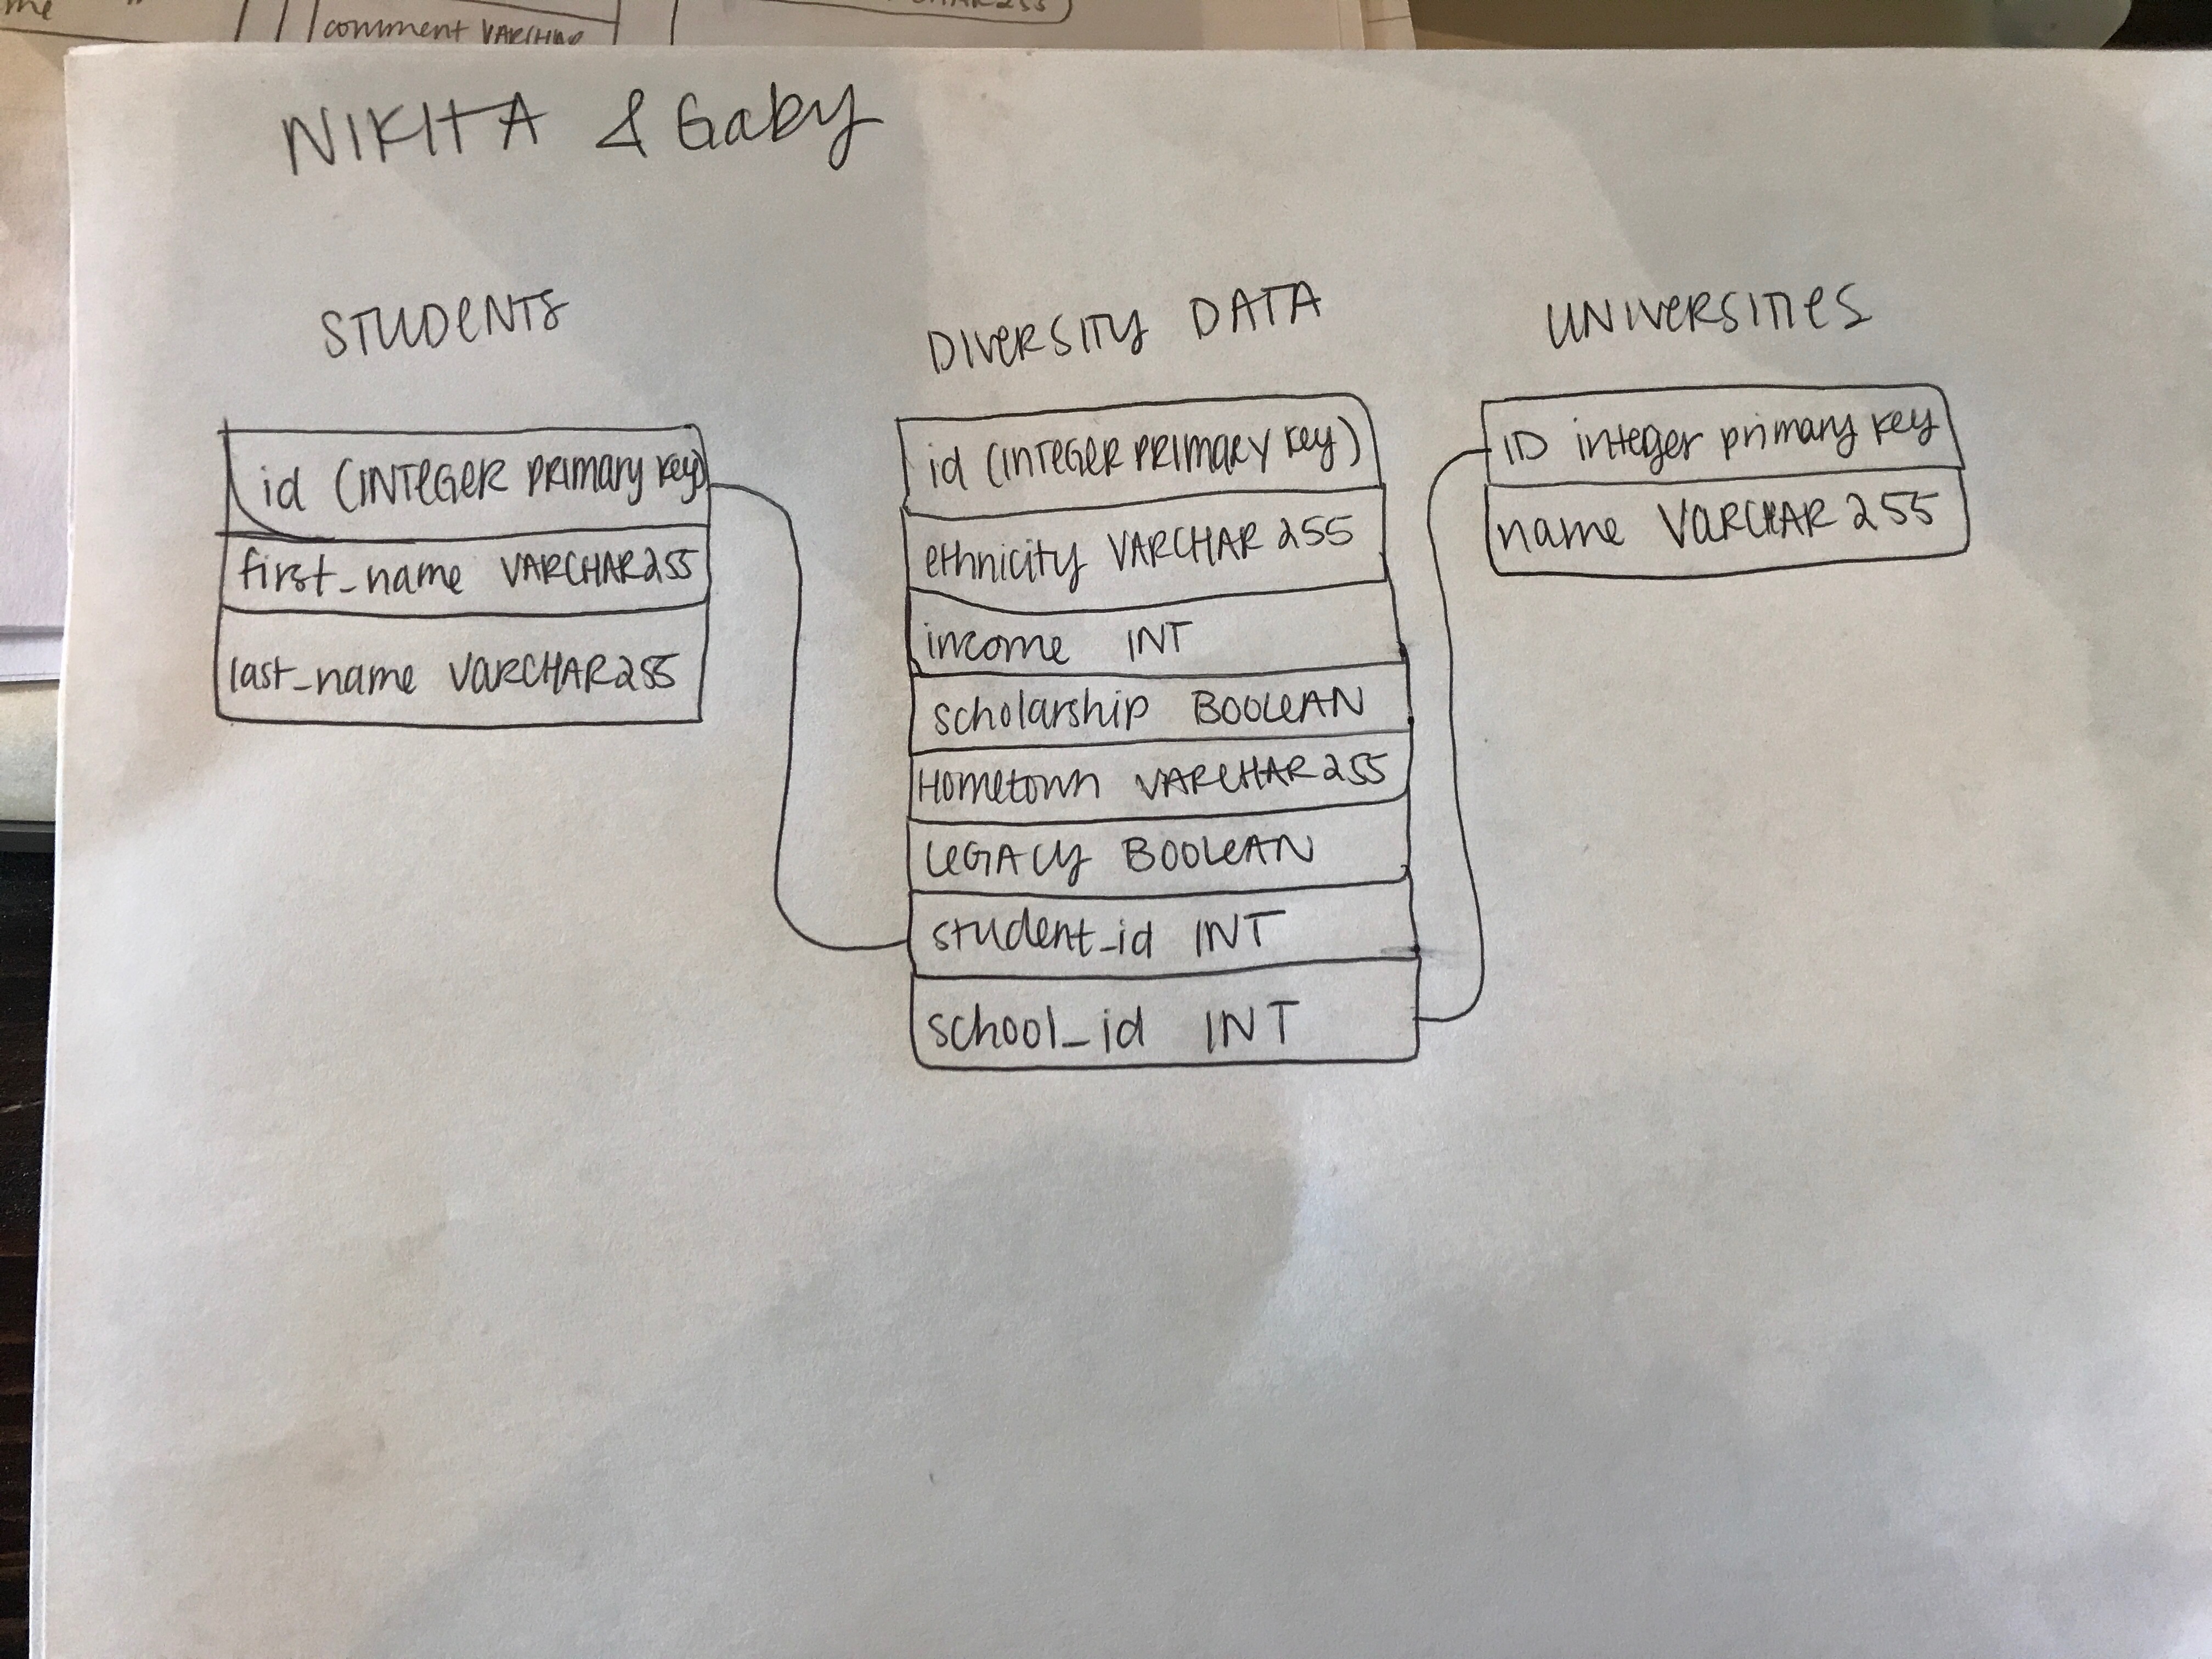 comment VARCHAR
NIKITA & Gaby
STUDENTS
id (INTEGER PRIMARY Key)
first_name VARCHAR255
last_name VARCHAR255
DIVERSITY DATA
id (INTEGER PRIMARY Key)
ethnicity VARCHAR 255
income INT
scholarship BOOLEAN
Hometown VARCHAR255
LEGACY BOOLEAN
student_id INT
school_id INT
UNIVERSITIES
ID integer primary key
name VARCHAR 255